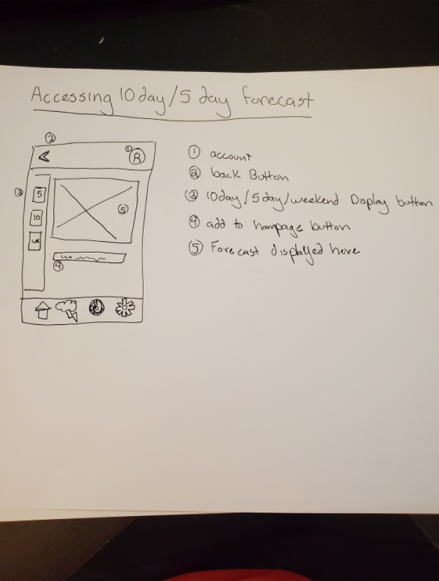 Accessing 10 day/5 day forecast
② ① 
③ 5 ⑤
10
④
① account
② back Button
③ 10day/5day/weekend Display button
④ add to hompage button
⑤ Forecast displayed here